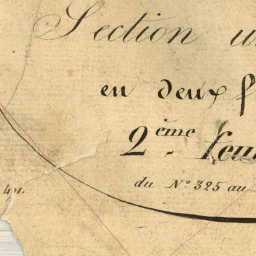 Section u
en deux f
2ème feu
du N° 325 au